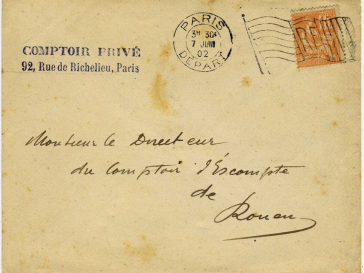 COMPTOIR PRIVÉ
92, Rue de Richelieu, Paris
PARIS
3H 30
7 JUIN
02
DEPART
Monsieur le Directeur
du Comptoir d'Escompte
de
Rouen